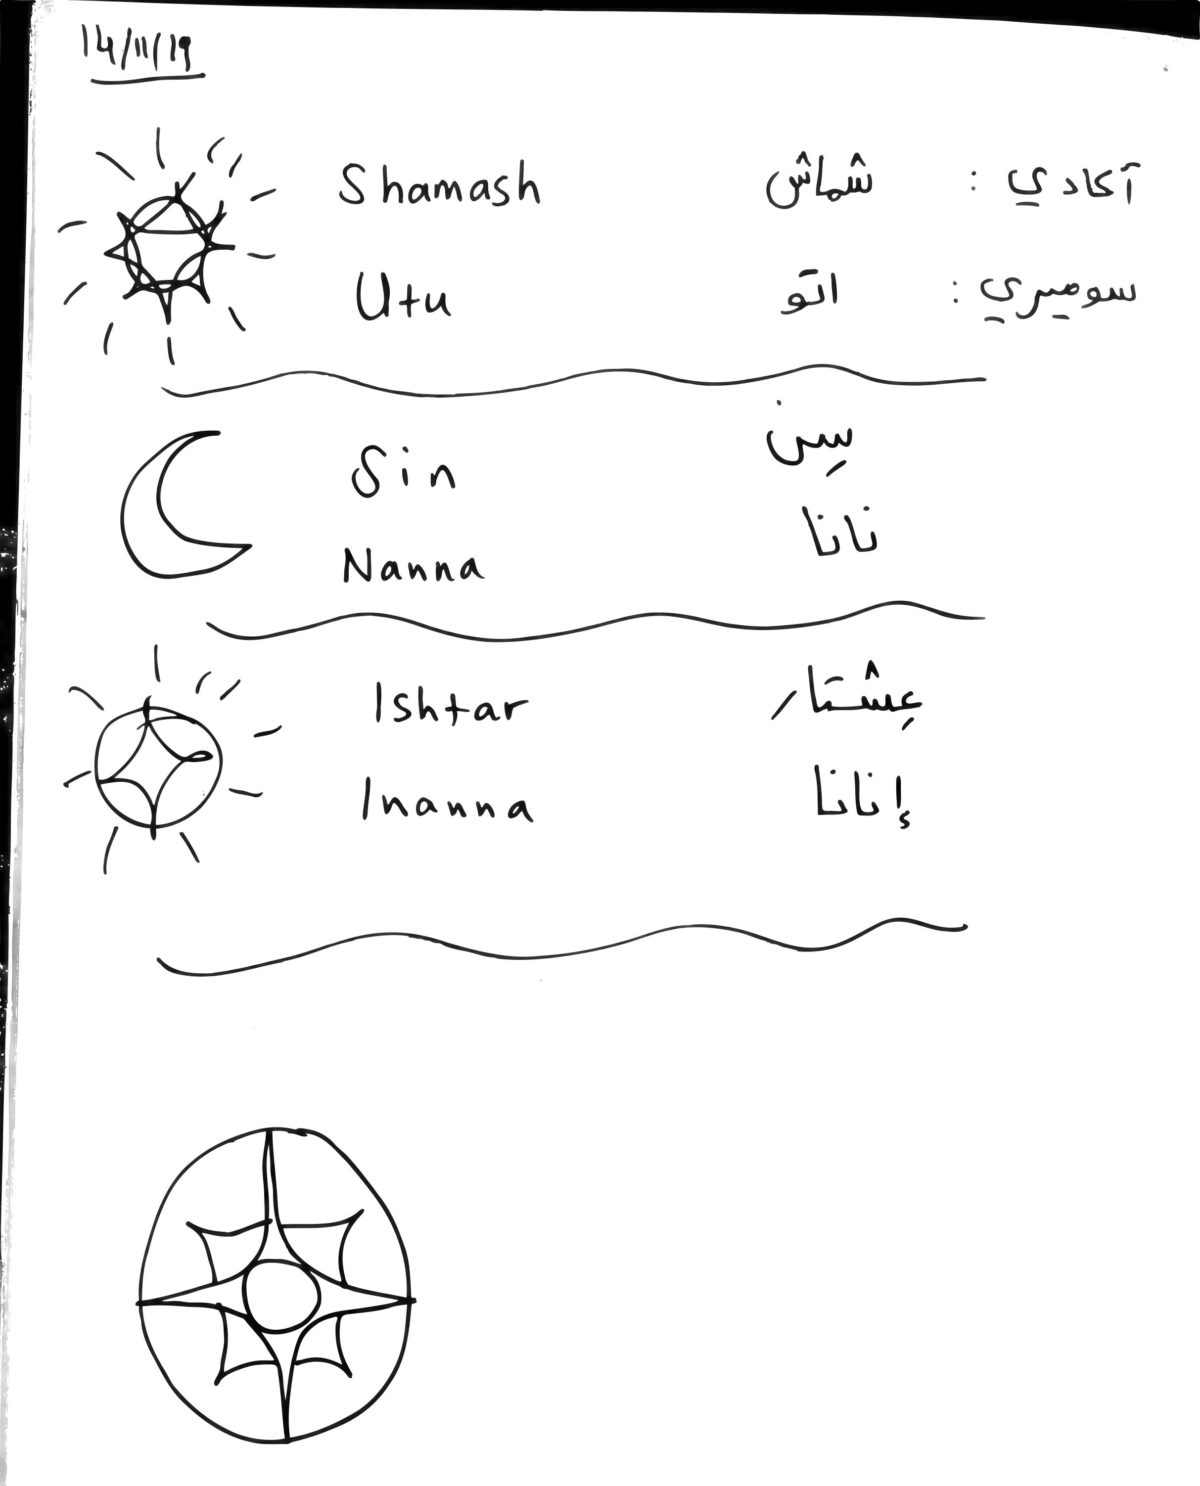 14/11/19
Shamash شماش آكادي :
Utu اتو سوميري :
Sin سِن
Nanna نانا
Ishtar عِشتار
Inanna إنانا